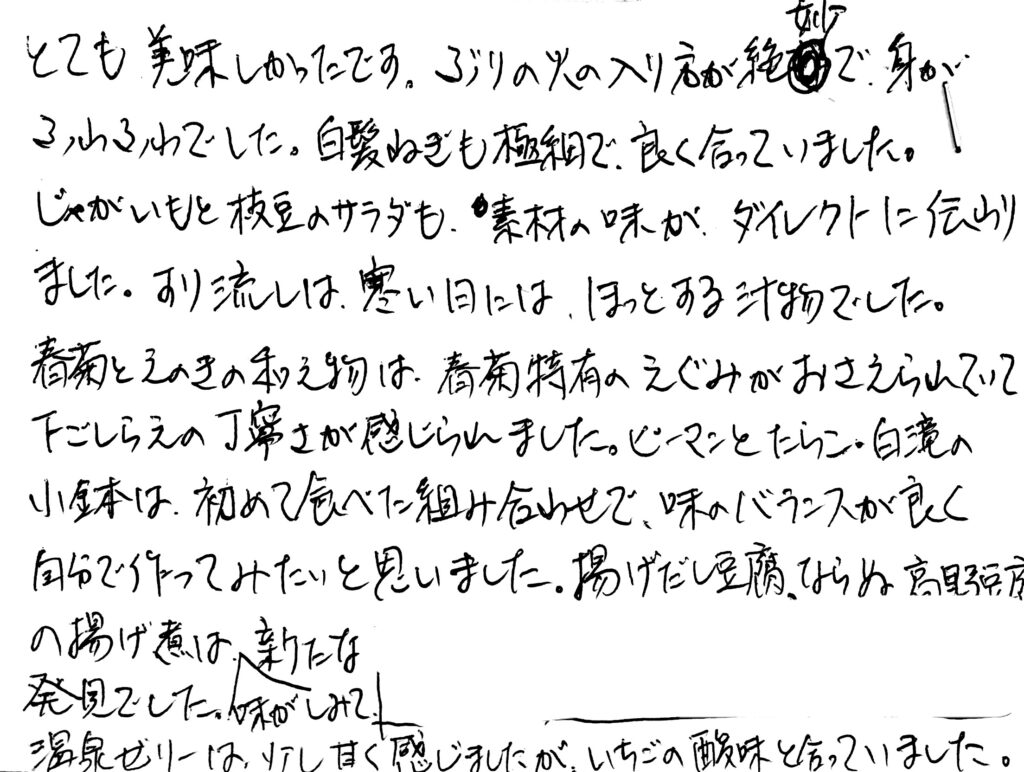 とても美味しかったです。ぶりの火の入り方が絶妙で、身が
ふわふわでした。白髪ねぎも極細で、良く合っていました。
じゃがいもと枝豆のサラダも、素材の味が、ダイレクトに伝わり
ました。すり流しは、寒い日には、ほっとする汁物でした。
春菊とえのきの和え物は、春菊特有のえぐみがおさえられていて
下ごしらえの丁寧さが感じられました。ピーマンとたらこ・白滝の
小鉢は、初めて食べた組み合わせで、味のバランスが良く
自分で作ってみたいと思いました。揚げだし豆腐、ならぬ高野豆腐
の揚げ煮は、新たな
発見でした。味がしみて、
温泉ゼリーは、少し甘く感じましたが、いちごの酸味と合っていました。